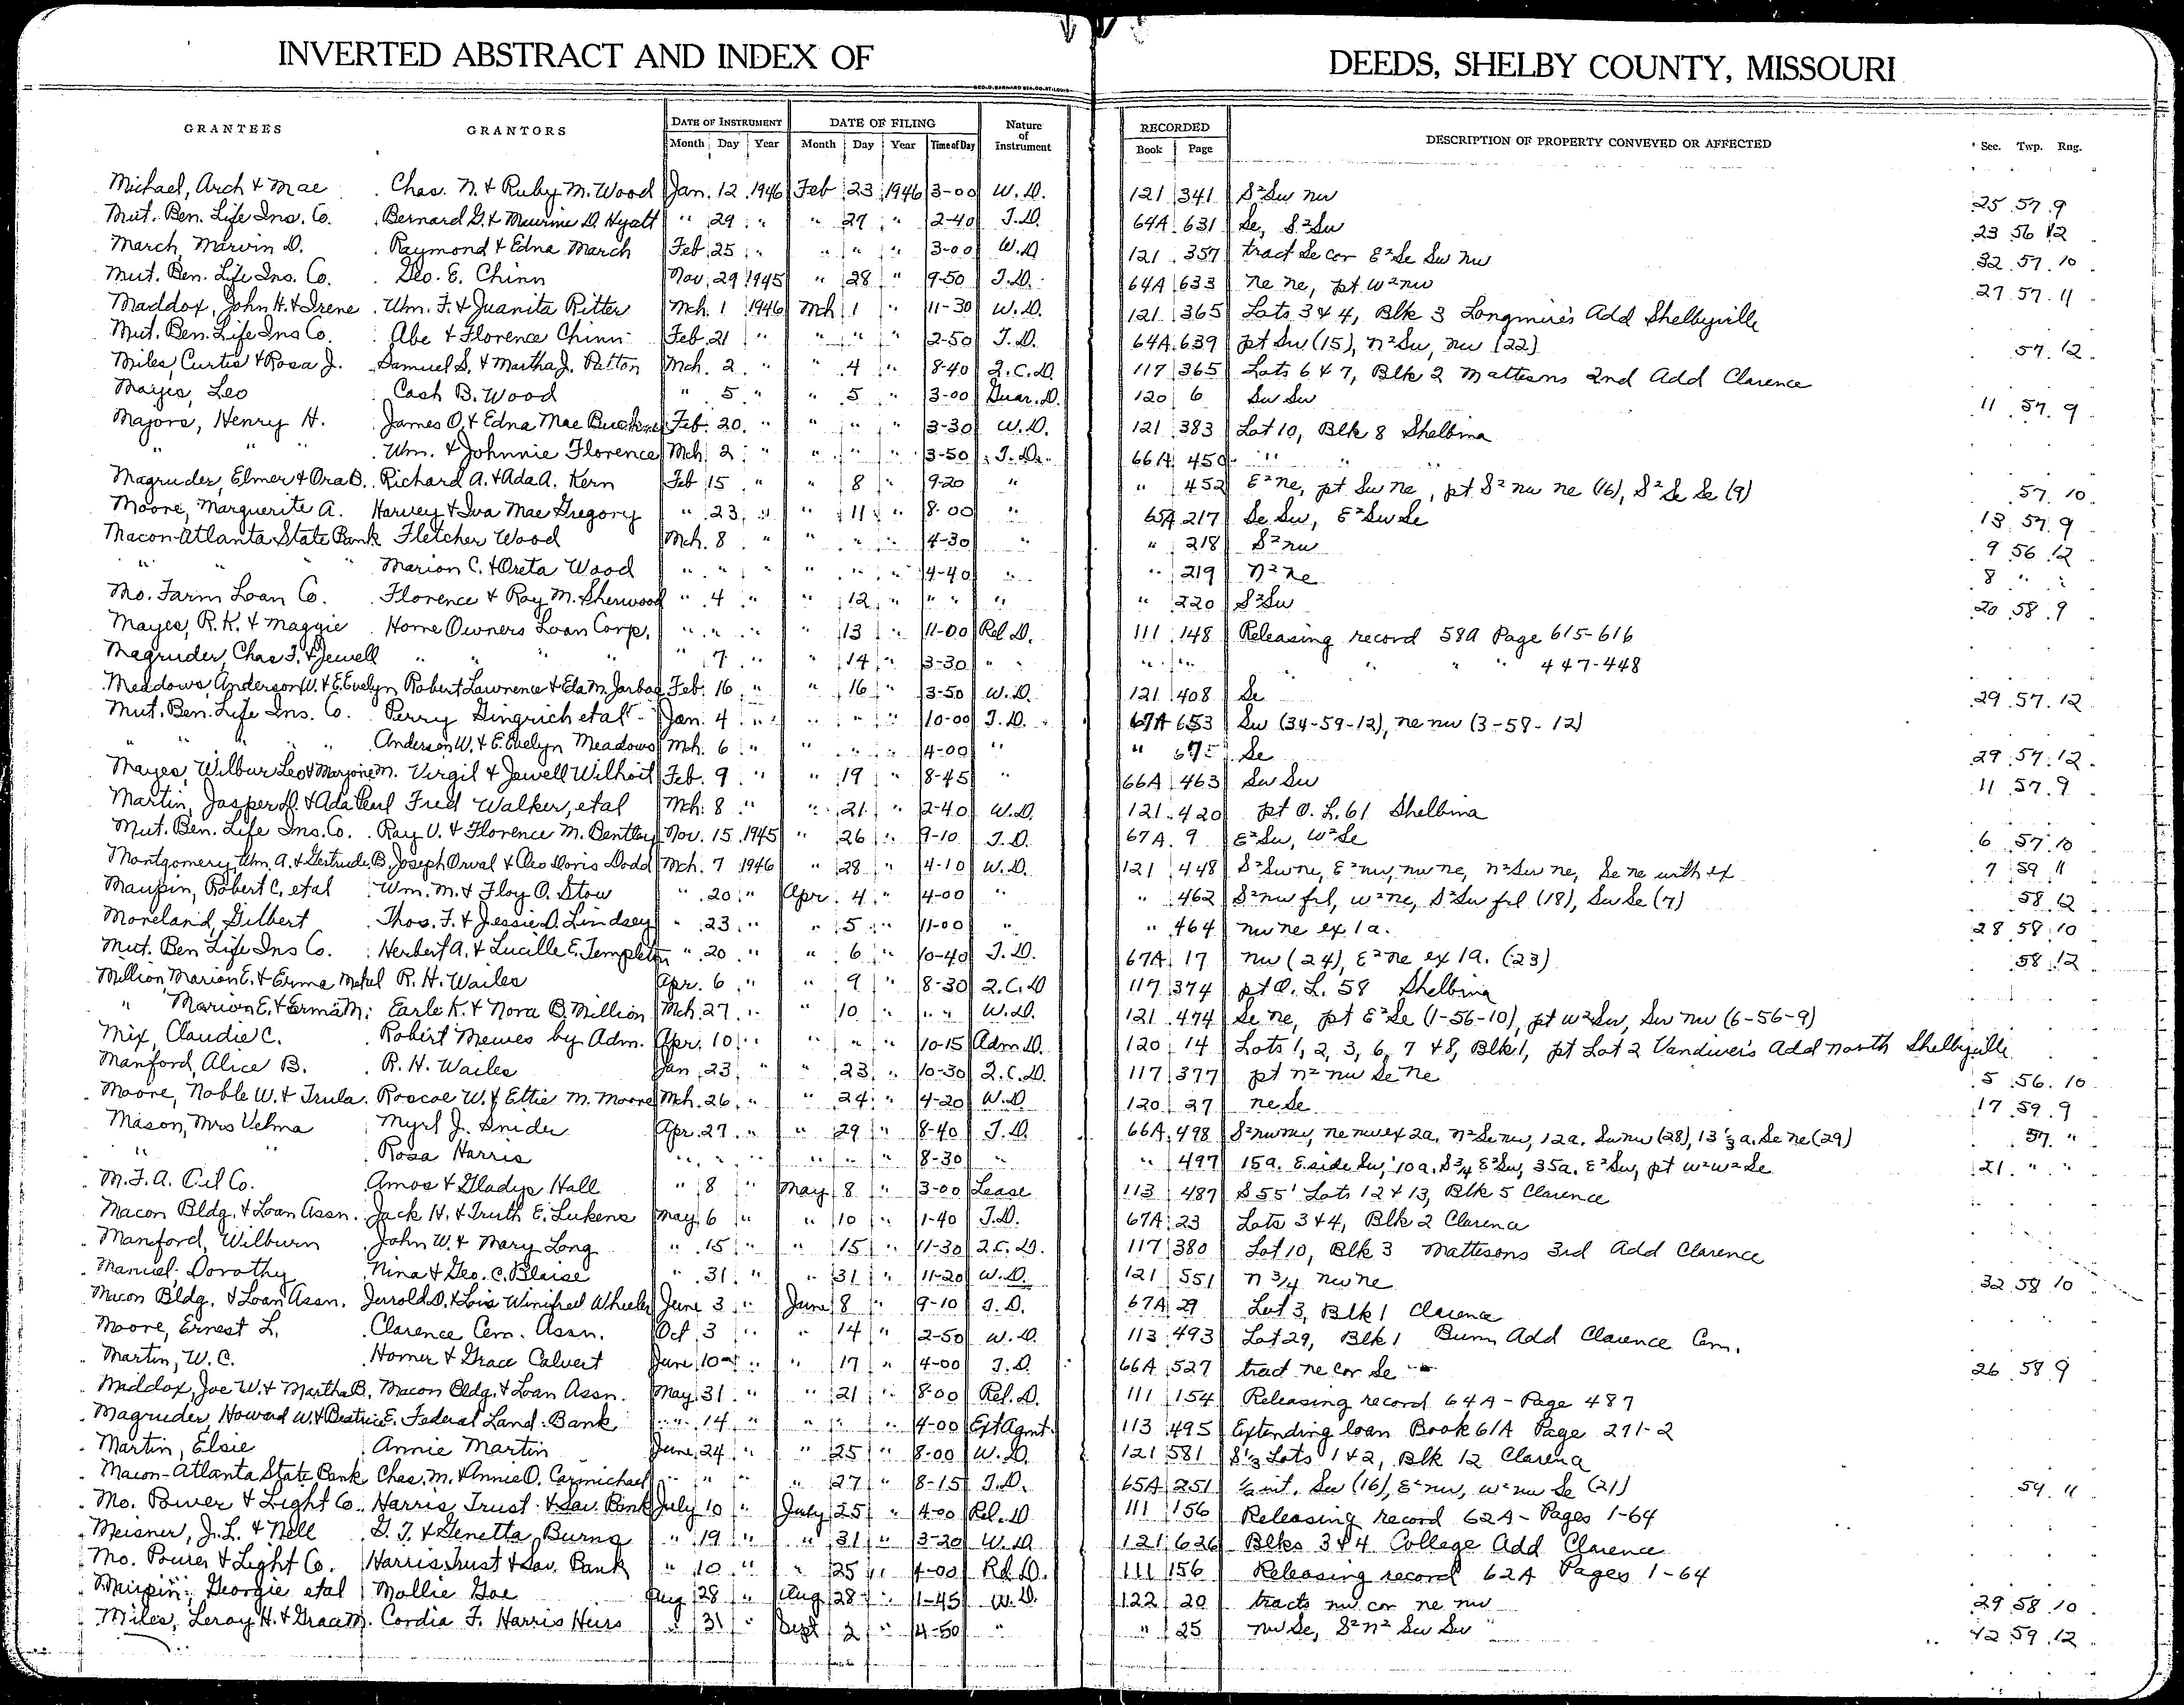 INVERTED ABSTRACT AND INDEX OF DEEDS, SHELBY COUNTY, MISSOURI
GRANTEES GRANTORS DATE OF INSTRUMENT DATE OF FILING Nature of Instrument RECORDED DESCRIPTION OF PROPERTY CONVEYED OR AFFECTED Sec. Twp. Rng.
Month Day Year Month Day Year Time of Day Book Page
Michael, Arch & Mae Chas. N. & Ruby M. Wood Jan. 12 1946 Feb 23 1946 3-00 W.D. 121 341 S²Sw nw 25 57 9
Mut. Ben. Life Ins. Co. Bernard G. & Maurine D. Hyatt " 29 " " 27 " 2-40 T.D. 64A 631 Se, S²Sw 23 56 12
March, Marvin D. Raymond & Edna March Feb 25 " " " " 3-00 W.D 121 357 tract Se cor E²Se Sw nw 32 57 10
Mut. Ben. Life Ins. Co. Geo. E. Chinn Nov. 29 1945 " 28 " 9-50 T.D. 64A 633 ne ne, pt w²nw 27 57 11
Maddox, John H. & Irene Wm. F. & Juanita Ritter Mch. 1 1946 Mch 1 " 11-30 W.D. 121 365 Lots 3 & 4, Blk 3 Longmire's Add Shelbyville
Mut. Ben. Life Ins Co. Abe & Florence Chinn Feb 21 " " " " 2-50 T.D. 64A 639 pt Sw (15), n²Sw, nw (22) 57 12
Miles, Curtis & Rosa J. Samuel S. & Martha J. Patton Mch. 2 " " 4 " 8-40 Q.C.D. 117 365 Lots 6 & 7, Blk 2 Mattesons 2nd Add Clarence
Mayes, Leo Cash B. Wood " 5 " " 5 " 3-00 Guar.D. 120 6 Sw Sw 11 57 9
Majors, Henry H. James O. & Edna Mae Feb. 20 " " " " 3-30 W.D. 121 383 Lot 10, Blk 8 Shelbina
" " " Wm. & Johnnie Florence Mch. 2 " " " " 3-50 T.D. 66A 450 " " "
Magruder, Elmer & Ora B. Richard A. & Ada A. Kern Feb 15 " " 8 " 9-20 " " 452 E²ne, pt Sw ne, pt S² nw ne (16), S² Se Se (9) 57 10
Moore, Marguerite A. Harvey & Iva Mae Gregory " 23 " " 11 " 8-00 " 65A 217 Se Sw, E²Sw Se 13 57 9
Macon-Atlanta State Bank Fletcher Wood Mch. 8 " " " " 4-30 " " 218 S²nw 9 56 12
" " " Marion C. & Oreta Wood " " " " " " 4-40 " " 219 n²ne 8 " "
Mo. Farm Loan Co. Florence & Ray M. Sherwood " 4 " " 12 " " " " " 220 S²Sw 20 58 9
Mayes, R.K. & Maggie Home Owners Loan Corp. " " " " 13 " 11-00 Rel D. 111 148 Releasing record 58A Page 615-616
Magruder, Chas F. & Jewell " " " " " 7 " " 14 " 3-30 " " " " " " " 447-448
Meadows, Anderson W. & E. Evelyn Robert Lawrence & Eda M. Jarboe Feb. 16 " " 16 " 3-50 W.D. 121 408 Se 29 57 12
Mut. Ben. Life Ins. Co. Perry Gingrich etal Jan. 4 " " " " 10-00 T.D. 67A 653 Sw (34-59-12), ne nw (3-58-12)
" " " " Anderson W. & E. Evelyn Meadows Mch. 6 " " " " 4-00 " " Se 29 57 12
Mayes, Wilbur Leo & Marjorie M. Virgil & Jewell Wilhoit Feb. 9 " " 19 " 8-45 " 66A 463 Sw Sw 11 57 9
Martin, Jasper D. & Ada Pearl Fred Walker, etal Mch. 8 " " 21 " 2-40 W.D. 121 420 pt O.L. 61 Shelbina
Mut. Ben. Life Ins. Co. Ray V. & Florence M. Bentley Nov. 15 1945 " 26 " 9-10 T.D. 67A 9 E²Sw, W²Se 6 57 10
Montgomery, Wm. A. & Gertrude B. Joseph Orval & Cleo Doris Dodd Mch. 7 1946 " 28 " 4-10 W.D. 121 448 S²Sw ne, E²nw, nw ne, n²Sw ne, Se ne with ex 7 59 11
Maupin, Robert C. etal Wm. M. & Floy O. Stow " 20 " Apr. 4 " 4-00 " " 462 S²nw frl, w²ne, S²Sw frl (18), Sw Se (7) 58 12
Moreland, Gilbert Thos. F. & Jessie D. Lindsey " 23 " " 5 " 11-00 " " 464 nw ne ex 1a. 28 58 10
Mut. Ben Life Ins Co. Herbert A. & Lucille E. Templeton " 20 " " 6 " 10-40 T.D. 67A 17 nw (24), E²ne ex 1a. (23) 58 12
Million Marion E. & Erma Mabel R. H. Wailes Apr. 6 " " 9 " 8-30 Q.C.D 117 374 pt O.L. 58 Shelbina
" Marion E. & Erma M. Earle K. & Nora B. Million Mch. 27 " " 10 " " " W.D. 121 474 Se ne, pt E²Se (1-56-10), pt w²Sw, Sw nw (6-56-9)
Mix, Claudie C. Robert Mewes by Adm. Apr. 10 " " " " 10-15 Adm D. 120 14 Lots 1, 2, 3, 6, 7 & 8, Blk 1, pt Lot 2 Vandiver's Add north Shelbyville
Manford, Alice B. R. H. Wailes Jan 23 " " 23 " 10-30 Q.C.D. 117 377 pt n² nw Se ne 5 56 10
Moore, Noble W. & Trula Roscoe W. & Ettie M. Moore Mch. 26 " " 24 " 4-20 W.D 120 27 ne Se 17 59 9
Mason, Mrs Velma Myrl J. Snider Apr. 27 " " 29 " 8-40 T.D. 66A 498 S²nw nw, ne nw ex 2a, n²Se nw, 12a. Sw nw (28), 13⅓ a. Se ne (29) 57 "
" " Rosa Harris " " " " " " 8-30 " " 497 15a. E side Sw, 10a. S¾ E²Sw, 35a. E²Sw, pt w²w² Se 21 " "
M.F.A. Oil Co. Amos & Gladys Hall " 8 " May 8 " 3-00 Lease 113 487 S 55' Lots 12 & 13, Blk 5 Clarence
Macon Bldg. & Loan Assn. Jack H. & Truth E. Lukens May 6 " " 10 " 1-40 T.D. 67A 23 Lots 3 & 4, Blk 2 Clarence
Manford, Wilburn John W. & Mary Long " 15 " " 15 " 11-30 Q.C.D. 117 380 Lot 10, Blk 3 Mattesons 3rd Add Clarence
Manuel, Dorothy Nina & Geo. C. Blaise " 31 " " 31 " 11-20 W.D. 121 551 n ¾ nw ne 32 58 10
Macon Bldg. & Loan Assn. Jerrold D. & Lois Winifred Wheeler June 3 " June 8 " 9-10 T.D. 67A 29 Lot 3, Blk 1 Clarence
Moore, Ernest L. Clarence Cem. Assn. Oct 3 " " 14 " 2-50 W.D. 113 493 Lot 29, Blk 1 Bum Add Clarence Cem.
Martin, W.C. Homer & Grace Calvert June 10 " " 17 " 4-00 T.D. 66A 527 tract ne cor Se 26 58 9
Maddox, Joe W. & Martha B. Macon Bldg. & Loan Assn. May 31 " " 21 " 8-00 Rel. D. 111 154 Releasing record 64A - Page 487
Magruder, Howard W. & Beatrice E. Federal Land Bank " 14 " " " " 4-00 Ext Agmt. 113 495 Extending loan Book 61A Page 271-2
Martin, Elsie Annie Martin June 24 " " 25 " 8-00 W.D. 121 581 S⅓ Lots 1 & 2, Blk 12 Clarence
Macon-Atlanta State Bank Chas. M. & Annie O. Carmichael " " " " 27 " 8-15 T.D. 65A 251 ½ int. Sw (16), E²nw, w²nw Se (21) 59 11
Mo. Power & Light Co. Harris Trust & Sav. Bank July 10 " July 25 " 4-00 Rel. D 111 156 Releasing record 62A - Pages 1-64
Meisner, J.L. & Nell G.T. & Genetta Burns " 19 " " 31 " 3-20 W.D. 121 626 Blks 3 & 4 College Add Clarence
Mo. Power & Light Co. Harris Trust & Sav. Bank " 10 " " 25 " 4-00 Rel D. 111 156 Releasing record 62A Pages 1-64
Maupin, Georgie etal Mollie Goe Aug 28 " Aug 28 " 1-45 W.D. 122 20 tracts nw cor ne nw 29 58 10
Miles, Leroy H. & Grace M. Cordia F. Harris Heirs " 31 " Sept 3 " 4-50 " " 25 nw Se, S²n² Sw Sw 59 12